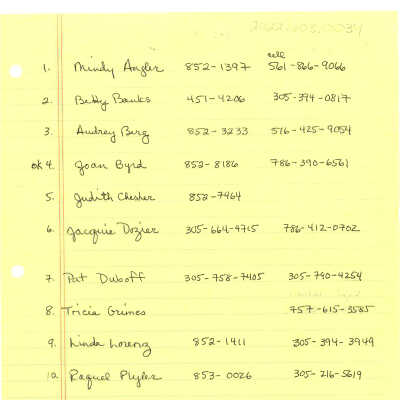 2022.103.0034
cell
1. Mindy Angler 852-1397 561-866-9066
2. Betty Banks 451-4206 305-394-0817
3. Audrey Berg 852-3233 516-425-9054
ok 4. Joan Byrd 852-8186 786-390-6561
5. Judith Chester 852-7464
6. Jacquie Dozier 305-664-4715 786-412-0702
7. Pat Duboff 305-758-7405 305-790-4254
8. Tricia Grimes 757-615-3585
9. Linda Lorenz 852-1411 305-394-3949
10 Raquel Plyler 853-0026 305-216-5619